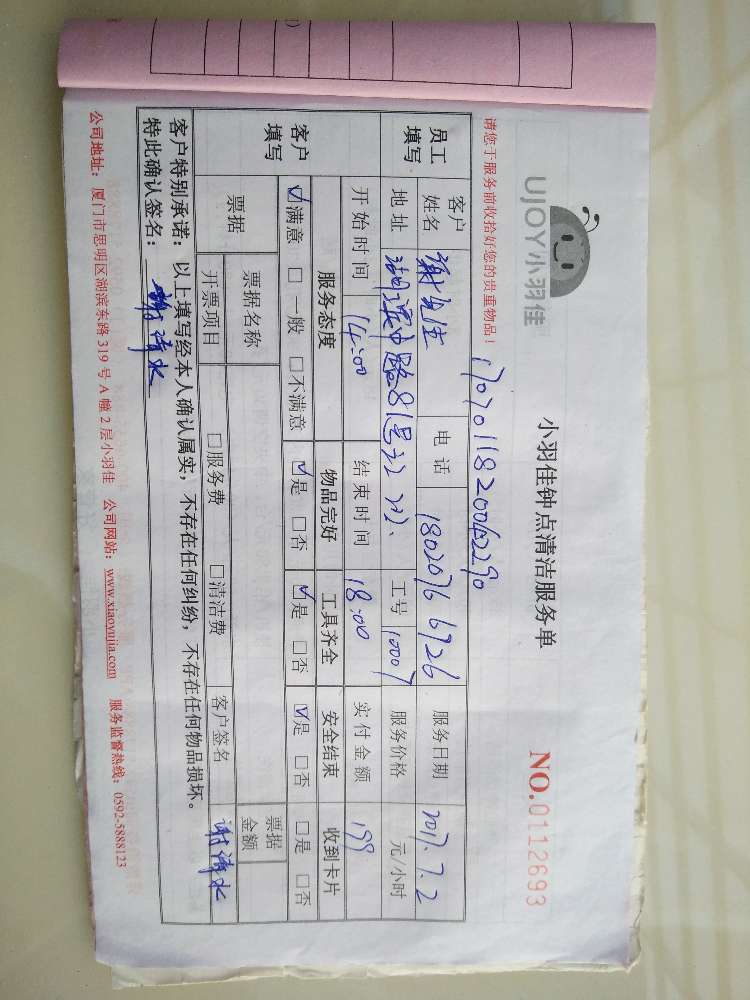 UJOY小羽佳
小羽佳钟点清洁服务单
NO.0112693
请您于服务前收拾好您的贵重物品！
员工填写
客户姓名 谢先生 电话 18020766926 服务日期 2017.7.2
地址 工号 10007 服务价格 元/小时
开始时间 14:00 结束时间 18:00 实付金额 199
客户填写
服务态度 物品完好 工具齐全 安全结束 收到卡片
☑满意 □一般 □不满意 ☑是 □否 ☑是 □否 ☑是 □否 □是 □否
票据 票据名称 票据金额
开票项目 □服务费 □清洁费 客户签名
客户特别承诺：以上填写经本人确认属实，不存在任何纠纷，不存在任何物品损坏。
特此确认签名：
公司地址：厦门市思明区湖滨东路 319 号 A 幢 2 层小羽佳 公司网站：www.xiaoyujia.com 服务监督热线：0592-5888123